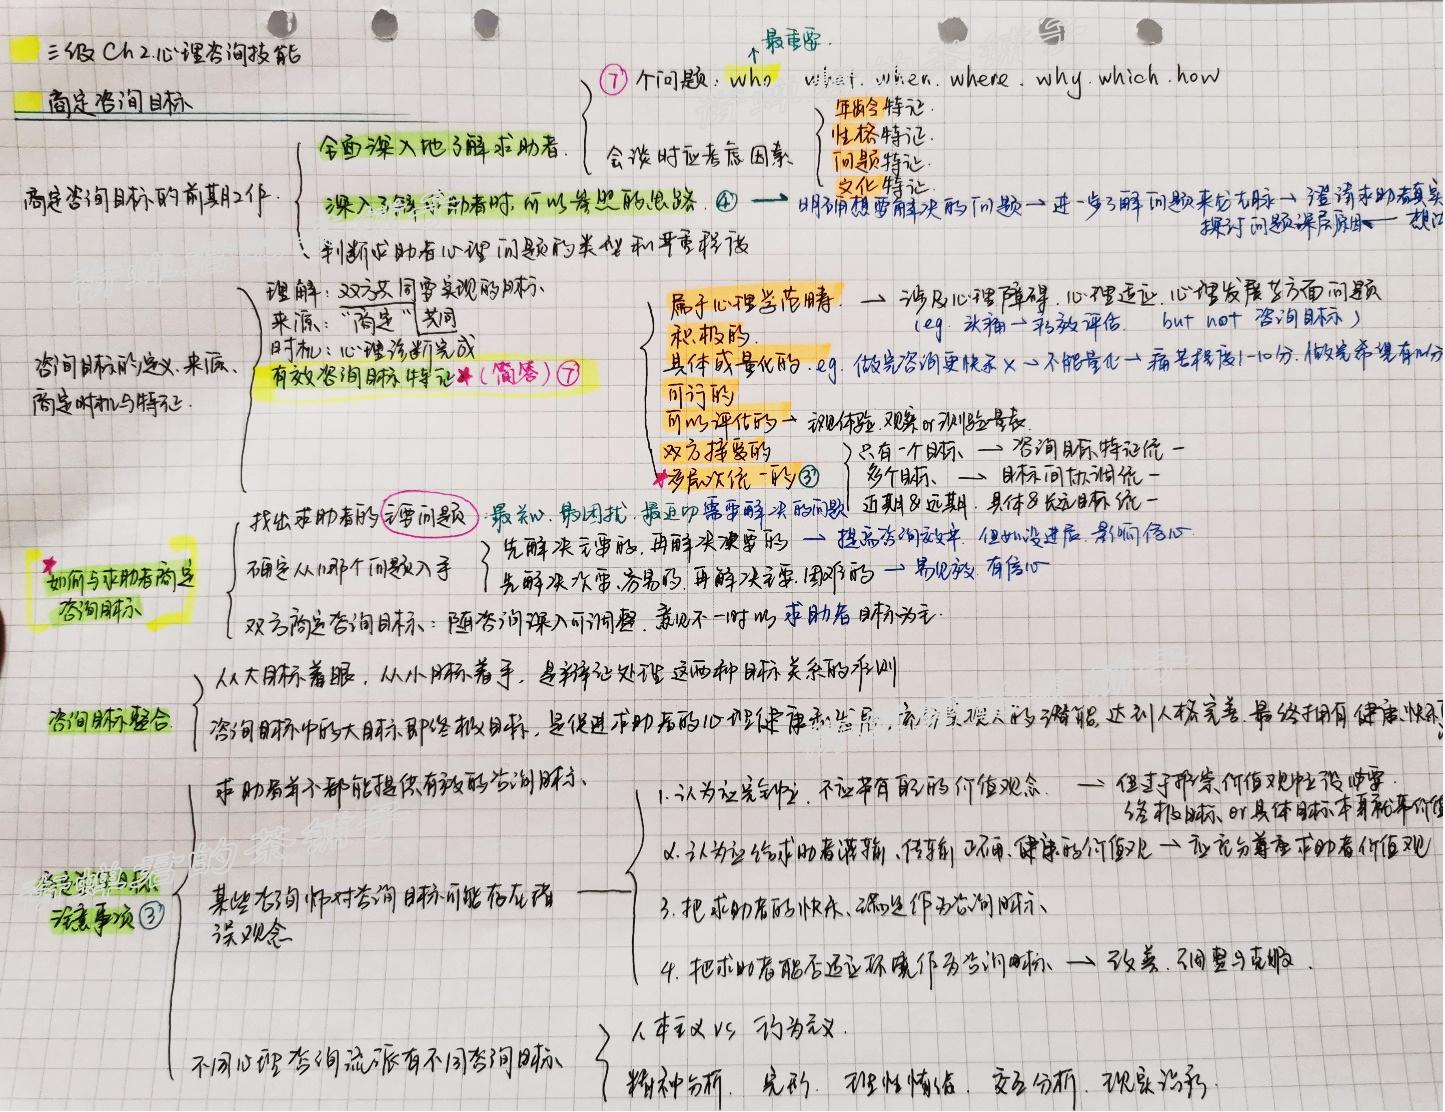 三级 Ch 2.心理咨询技能
商定咨询目标
商定咨询目标的前期工作
全面深入地了解求助者
⑦个问题: who what. when. where. why. which. how
最重要.
会谈时应考虑因素
年龄特征.
性格特征.
问题特征.
文化特征.
深入了解求助者时,可以参照的思路 ④ → 明确想要解决的问题 → 进一步了解问题来龙去脉 → 澄清求助者真实想法
探讨问题深层原因 ←
判断求助者心理问题的类型和严重程度
咨询目标的定义、来源、
商定时机与特征.
理解: 双方共同要实现的目标、
来源: "商定" 共同
时机: 心理诊断完成
有效咨询目标特征★(简答) ⑦
属于心理学范畴. → 涉及心理障碍.心理适应.心理发展等方面问题
(eg. 头痛 → 疗效评估. but not 咨询目标)
积极的.
具体或量化的. eg. 做完咨询要快乐 × → 不能量化 → 痛苦程度1-10分.
可行的
可以评估的 → 主观体验.观察or测验量表.
双方接受的
★多层次统一的③
只有一个目标、 → 咨询目标特征统一
多个目标、 → 目标间协调统一
近期&远期. 具体&长远目标统一
★如何与求助者商定
咨询目标
找出求助者的主要问题 最关心、最困扰、最迫切需要解决的问题
确定从哪个问题入手
先解决主要的,再解决次要的 → 提高咨询效率. 但如没进展,影响信心
先解决次要、容易的,再解决主要、困难的 → 易见效,有信心
双方商定咨询目标: 随咨询深入可调整,意见不一时以求助者目标为主.
咨询目标整合
从大目标着眼,从小目标着手,是辩证处理这两种目标关系的准则
咨询目标中的大目标即终极目标,是促进求助者的心理健康和发展,充分实现人的潜能,达到人格完善.最终拥有健康、快乐
商定咨询目标
注意事项③
求助者并不都能提供有效的咨询目标、
某些咨询师对咨询目标可能存在错
误观念
1.认为应完全中立,不应带有自己的价值观念. → 但过于那索价值观中立没必要.
终极目标、or具体目标本身就带价值
2.认为应给求助者灌输、传输正确、健康的价值观 → 应充分尊重求助者价值观
3.把求助者的快乐、满足作为咨询目标、
4.把求助者能否适应环境作为咨询目标、 → 改善、调整与克服.
不同心理咨询流派有不同咨询目标、
人本主义 vs 行为主义.
精神分析. 完形. 理性情绪. 交互分析. 现实治疗.